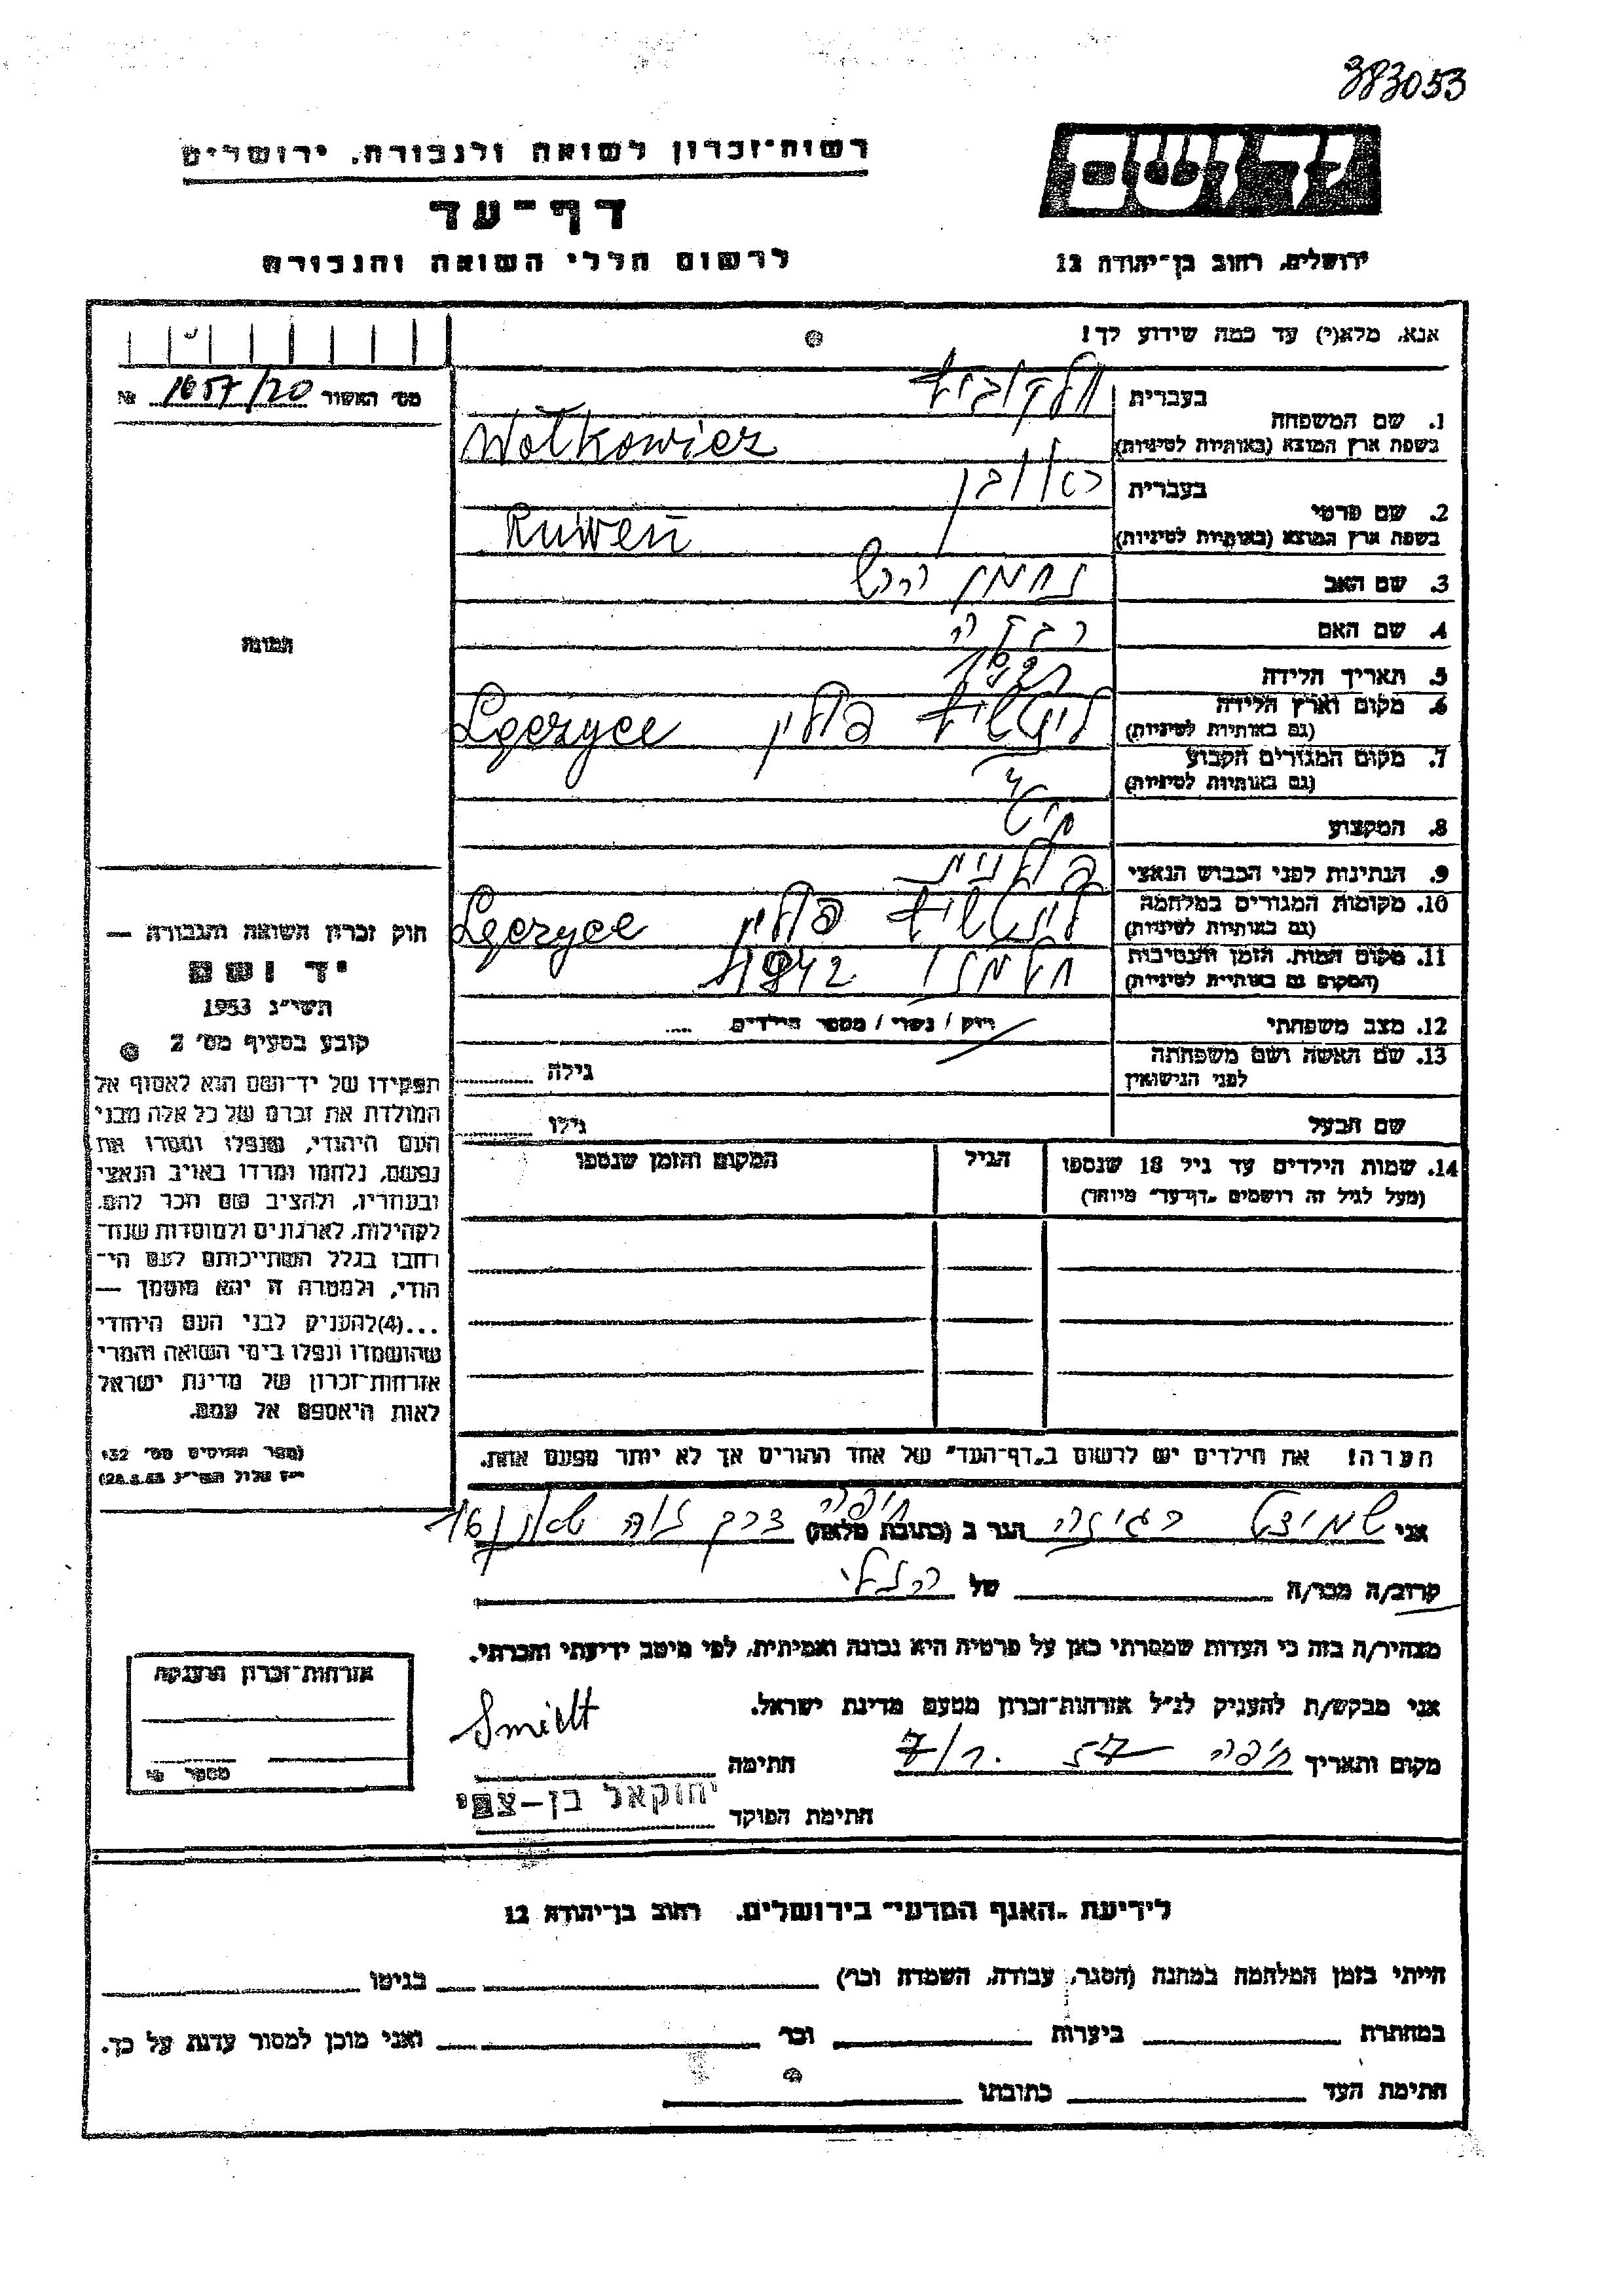 383053
יד ושם
רשות־זכרון לשואה ולגבורה, ירושלים
דף־עד
לרשום חללי השואה והגבורה
ירושלים, רחוב בן־יהודה 12
אנא, מלא(י) עד כמה שידוע לך!
מס׳ האשור 1657/20 №
1. שם המשפחה
בעברית
בשפת ארץ המוצא (באותיות לטיניות) Wołkowicz
2. שם פרטי
בעברית ראובן
בשפת ארץ המוצא (באותיות לטיניות) Ruwen
3. שם האב נחמן הירש
4. שם האם
5. תאריך הלידה
6. מקום וארץ הלידה
(גם באותיות לטיניות) פולין
7. מקום המגורים הקבוע
(גם באותיות לטיניות)
8. המקצוע
9. הנתינות לפני הכבוש הנאצי פולנית
10. מקומות המגורים במלחמה
(גם באותיות לטיניות) פולין
11. מקום המות, הזמן והנסיבות
(המקום גם באותיות לטיניות) חלמנו 1942
12. מצב משפחתי רווק / נשוי / מספר הילדים
13. שם האשה ושם משפחתה
לפני הנישואין גילה
שם הבעל גילו
14. שמות הילדים עד גיל 18 שנספו הגיל המקום והזמן שנספו
(מעל לגיל זה רושמים „דף־עד״ מיוחד)
הערה! את הילדים יש לרשום ב„דף־העד״ של אחד ההורים אך לא יותר מפעם אחת.
התמונה
חוק זכרון השואה והגבורה —
יד ושם
תשי״ג 1953
קובע בסעיף מס׳ 2
תפקידו של יד־ושם הוא לאסוף אל
המולדת את זכרם של כל אלה מבני
העם היהודי, שנפלו ומסרו את
נפשם, נלחמו ומרדו באויב הנאצי
ובעוזריו, ולהציב שם וזכר להם,
לקהילות, לארגונים ולמוסדות שנח־
רבו בגלל השתייכותם לעם הי־
הודי, ולמטרה זו יהא מוסמך —
...(4)להעניק לבני העם היהודי
שהושמדו ונפלו בימי השואה והמרי
אזרחות־זכרון של מדינת ישראל
לאות היאספם אל עמם.
(ספר החוקים מס׳ 132
י״ז אלול תשי״ג 28.8.53)
אני שמידט רגינה הגר ב (כתובת מלאה) חיפה דרך נוה שאנן 16
קרוב/ה מכר/ה של
מצהיר/ה בזה כי העדות שמסרתי כאן על פרטיה היא נכונה ואמיתית, לפי מיטב ידיעתי והכרתי.
אני מבקש/ת להעניק לנ״ל אזרחות־זכרון מטעם מדינת ישראל.
מקום ותאריך חיפה חתימה
חתימת הפוקד יחזקאל בן־צבי
אזרחות־זכרון הוענקה
מספר
לידיעת „האגף המדעי״ בירושלים, רחוב בן־יהודה 12
הייתי בזמן המלחמה במחנה (הסגר, עבודה, השמדה וכו׳) בגיטו
במחתרת ביערות וכו׳ ואני מוכן למסור עדות על כך.
חתימת העד כתובתו